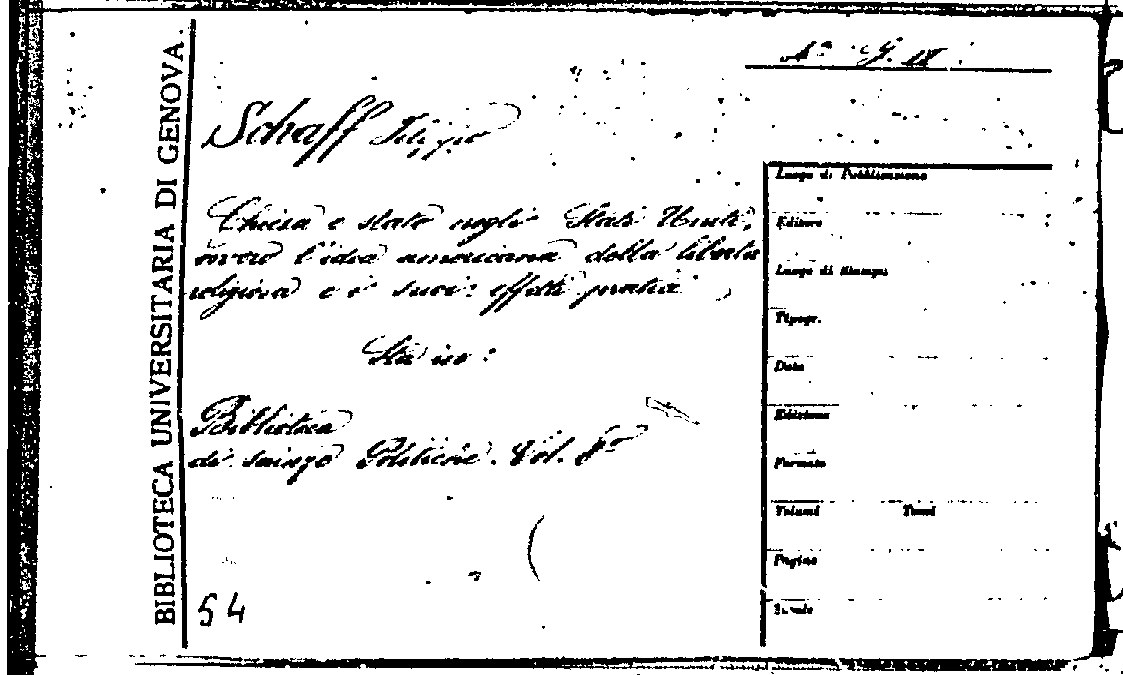 BIBLIOTECA UNIVERSITARIA DI GENOVA.
Schaff Filippo
Chiesa e stato negli Stati Uniti,
ovvero l'idea americana della libertà
religiosa e i suoi effetti pratici
Sta in:
Biblioteca
di scienze Politiche. Vol. 8º
54
Luogo di Pubblicazione
Editore
Luogo di Stampa
Tipogr.
Data
Edizione
Formato
Volumi Tomi
Pagine